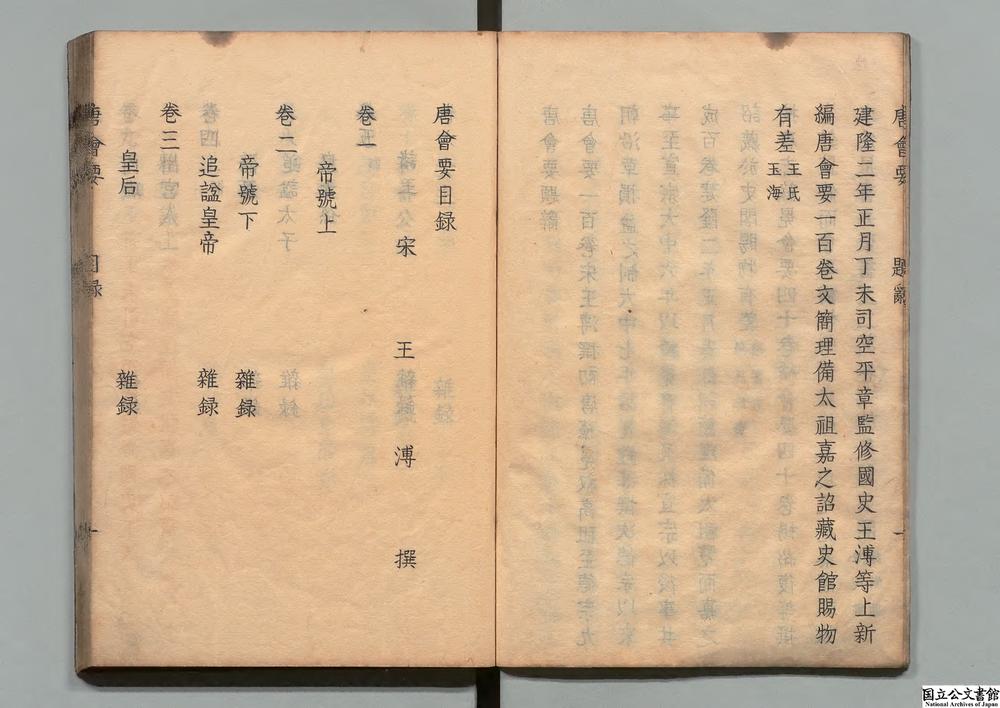 唐會要 題辭 一
建隆二年正月丁未司空平章監修國史王溥等上新
編唐會要一百卷文簡理備太祖嘉之詔藏史館賜物
有差 王氏
玉海
唐會要目録
宋 王 溥 撰
卷一
帝號上
卷二
帝號下 雜録
追諡皇帝 雜録
卷三
皇后 雜録
唐會要 目録 一
国立公文書館
National Archives of Japan